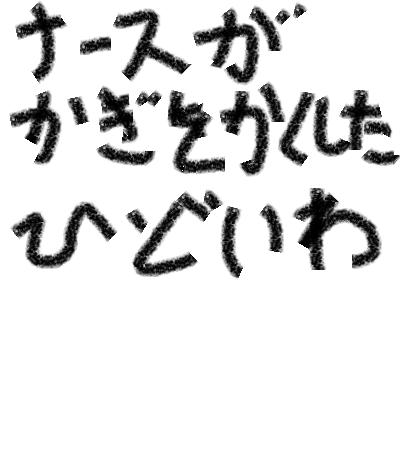 ナースが
かぎをかくした
ひどいわ